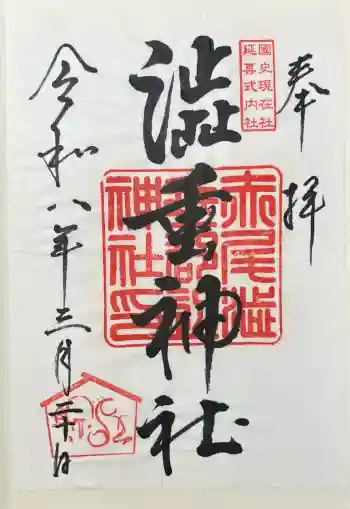 奉拝
國史現在社
延喜式内社
澁垂神社
赤尾澁
垂郡邊
神社印
令和八年三月二十日